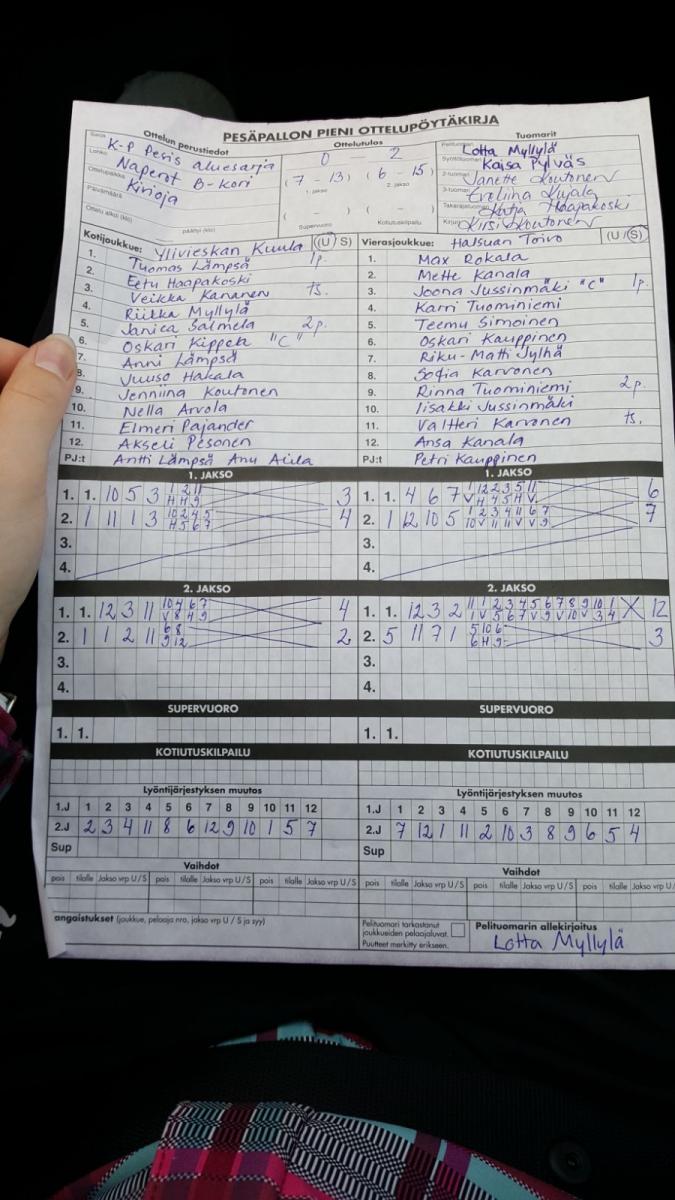 PESÄPALLON PIENI OTTELUPÖYTÄKIRJA
Ottelun perustiedot
Sarja K-P Pesis aluesarja
Lohko Naperot B-kori
Ottelupaikka Kirioja
Päivämäärä
Ottelu alkoi (klo) päättyi (klo)
Ottelutulos
0 2
(7 - 13) (6 - 15)
1. jakso 2. jakso
( - ) ( - )
Supervuoro Kotiutuskilpailu
Tuomarit
Pelituomari Lotta Myllylä
Syöttötuomari Kaisa Pylväs
2-tuomari Janette Koutonen
3-tuomari Eveliina Kujala
Takarajatuomari Katja Haapakoski
Kirjuri Kirsi Koutonen
Kotijoukkue: Ylivieskan Kuula (U S)
1. Tuomas Lämpsä 1p.
2. Eetu Haapakoski
3. Veikka Kananen ts.
4. Riikka Myllylä
5. Janica Salmela 2p.
6. Oskari Kippola "C"
7. Anni Lämpsä
8. Juuso Hakala
9. Jenniina Koutonen
10. Nella Arvola
11. Elmeri Pajander
12. Akseli Pesonen
PJ:t Antti Lämpsä Anu Aula
Vierasjoukkue: Halsuan Toivo (U/S)
1. Max Rokala
2. Mette Kanala
3. Joona Jussinmäki "C" 1p.
4. Karri Tuominiemi
5. Teemu Simoinen
6. Oskari Kauppinen
7. Riku-Matti Jylhä
8. Sofia Karvonen
9. Rinna Tuominiemi 2p.
10. Iisakki Jussinmäki
11. Valtteri Karvonen ts.
12. Ansa Kanala
PJ:t Petri Kauppinen
1. JAKSO
1. 1. 10 5 3 1 2 11 3
H H 9
2. 1 11 1 3 10 2 4 5 4
H 5 6 7
3.
4.
1. JAKSO
1. 1. 4 6 7 1 12 2 3 5 11 6
V H 4 5 H V
2. 1 12 10 5 1 2 3 4 11 6 7 7
10 V 11 11 V V 9
3.
4.
2. JAKSO
1. 1. 12 3 11 10 4 6 7 4
V 8 4 9
2. 1 1 2 11 6 8 2
9 12
3.
4.
2. JAKSO
1. 1. 12 3 2 11 1 2 3 4 5 6 7 8 9 10 1 X 12
1 V 5 6 7 V 9 V 10 V 3 4
2. 5 11 7 1 5 10 6 3
6 H 9
3.
4.
SUPERVUORO
1. 1.
SUPERVUORO
1. 1.
KOTIUTUSKILPAILU
KOTIUTUSKILPAILU
Lyöntijärjestyksen muutos
1.J 1 2 3 4 5 6 7 8 9 10 11 12
2.J 2 3 4 11 8 6 12 9 10 1 5 7
Sup
Lyöntijärjestyksen muutos
1.J 1 2 3 4 5 6 7 8 9 10 11 12
2.J 7 12 1 11 2 10 3 8 9 6 5 4
Sup
Vaihdot
pois tilalle Jakso vrp U/S pois tilalle Jakso vrp U/S pois tilalle Jakso vrp U/S
Vaihdot
pois tilalle Jakso vrp U/S pois tilalle Jakso vrp U/S pois tilalle Jakso vrp U/S
angaistukset (joukkue, pelaaja nro, jakso vrp U / S ja syy)
Pelituomari tarkastanut
joukkueiden pelaajaluvat.
Puutteet merkitty erikseen.
Pelituomarin allekirjoitus
Lotta Myllylä